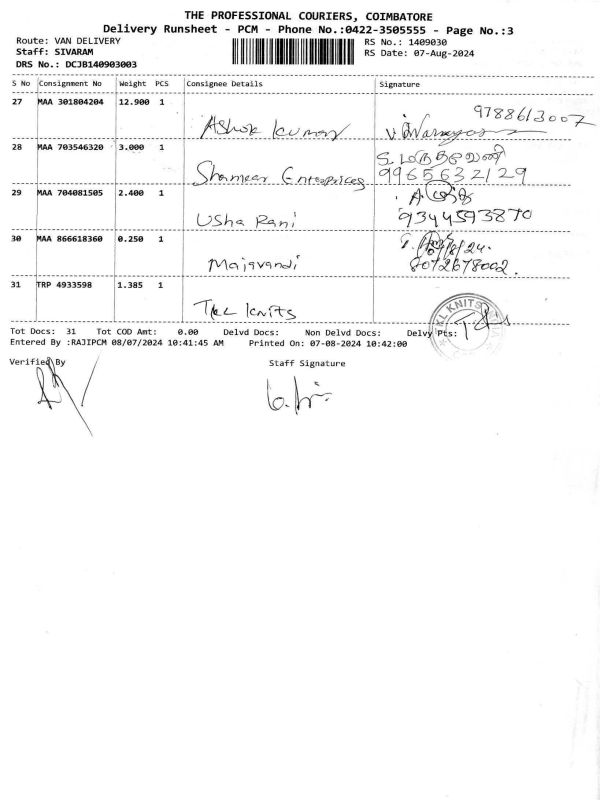 THE PROFESSIONAL COURIERS, COIMBATORE
Delivery Runsheet - PCM - Phone No.:0422-3505555 - Page No.:3
Route: VAN DELIVERY RS No.: 1409030
Staff: SIVARAM RS Date: 07-Aug-2024
DRS No.: DCJB140903003
S No Consignment No Weight PCS Consignee Details Signature
27 MAA 301804204 12.900 1 Ashok Kumar 9788613007
28 MAA 703546320 3.000 1 Shameer Enterprices
9965632129
29 MAA 704081505 2.400 1 Usha Rani
9344593870
30 MAA 866618360 0.250 1 Majavandi
8072678002.
31 TRP 4933598 1.385 1 TKL Knits
Tot Docs: 31 Tot COD Amt: 0.00 Delvd Docs: Non Delvd Docs: Delvy Pts:
Entered By :RAJIPCM 08/07/2024 10:41:45 AM Printed On: 07-08-2024 10:42:00
Verified By Staff Signature